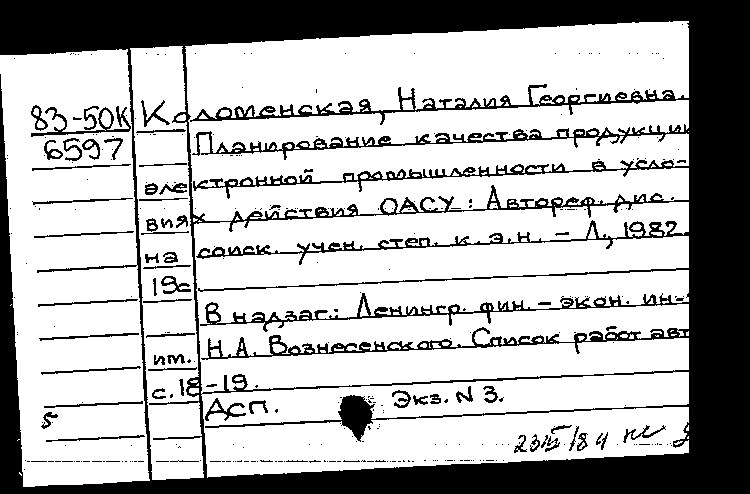 83-50К Коломенская, Наталия Георгиевна.
6597 Планирование качества продукции
электронной промышленности в усло-
виях действия ОАСУ: Автореф. дис.
на соиск. учен. степ. к.э.н. - Л., 1982.
19с
В надзаг.: Ленингр. фин.-экон. ин-
им. Н.А. Вознесенского. Список работ авт
с.18-19.
Асп. Экз. N 3.
5